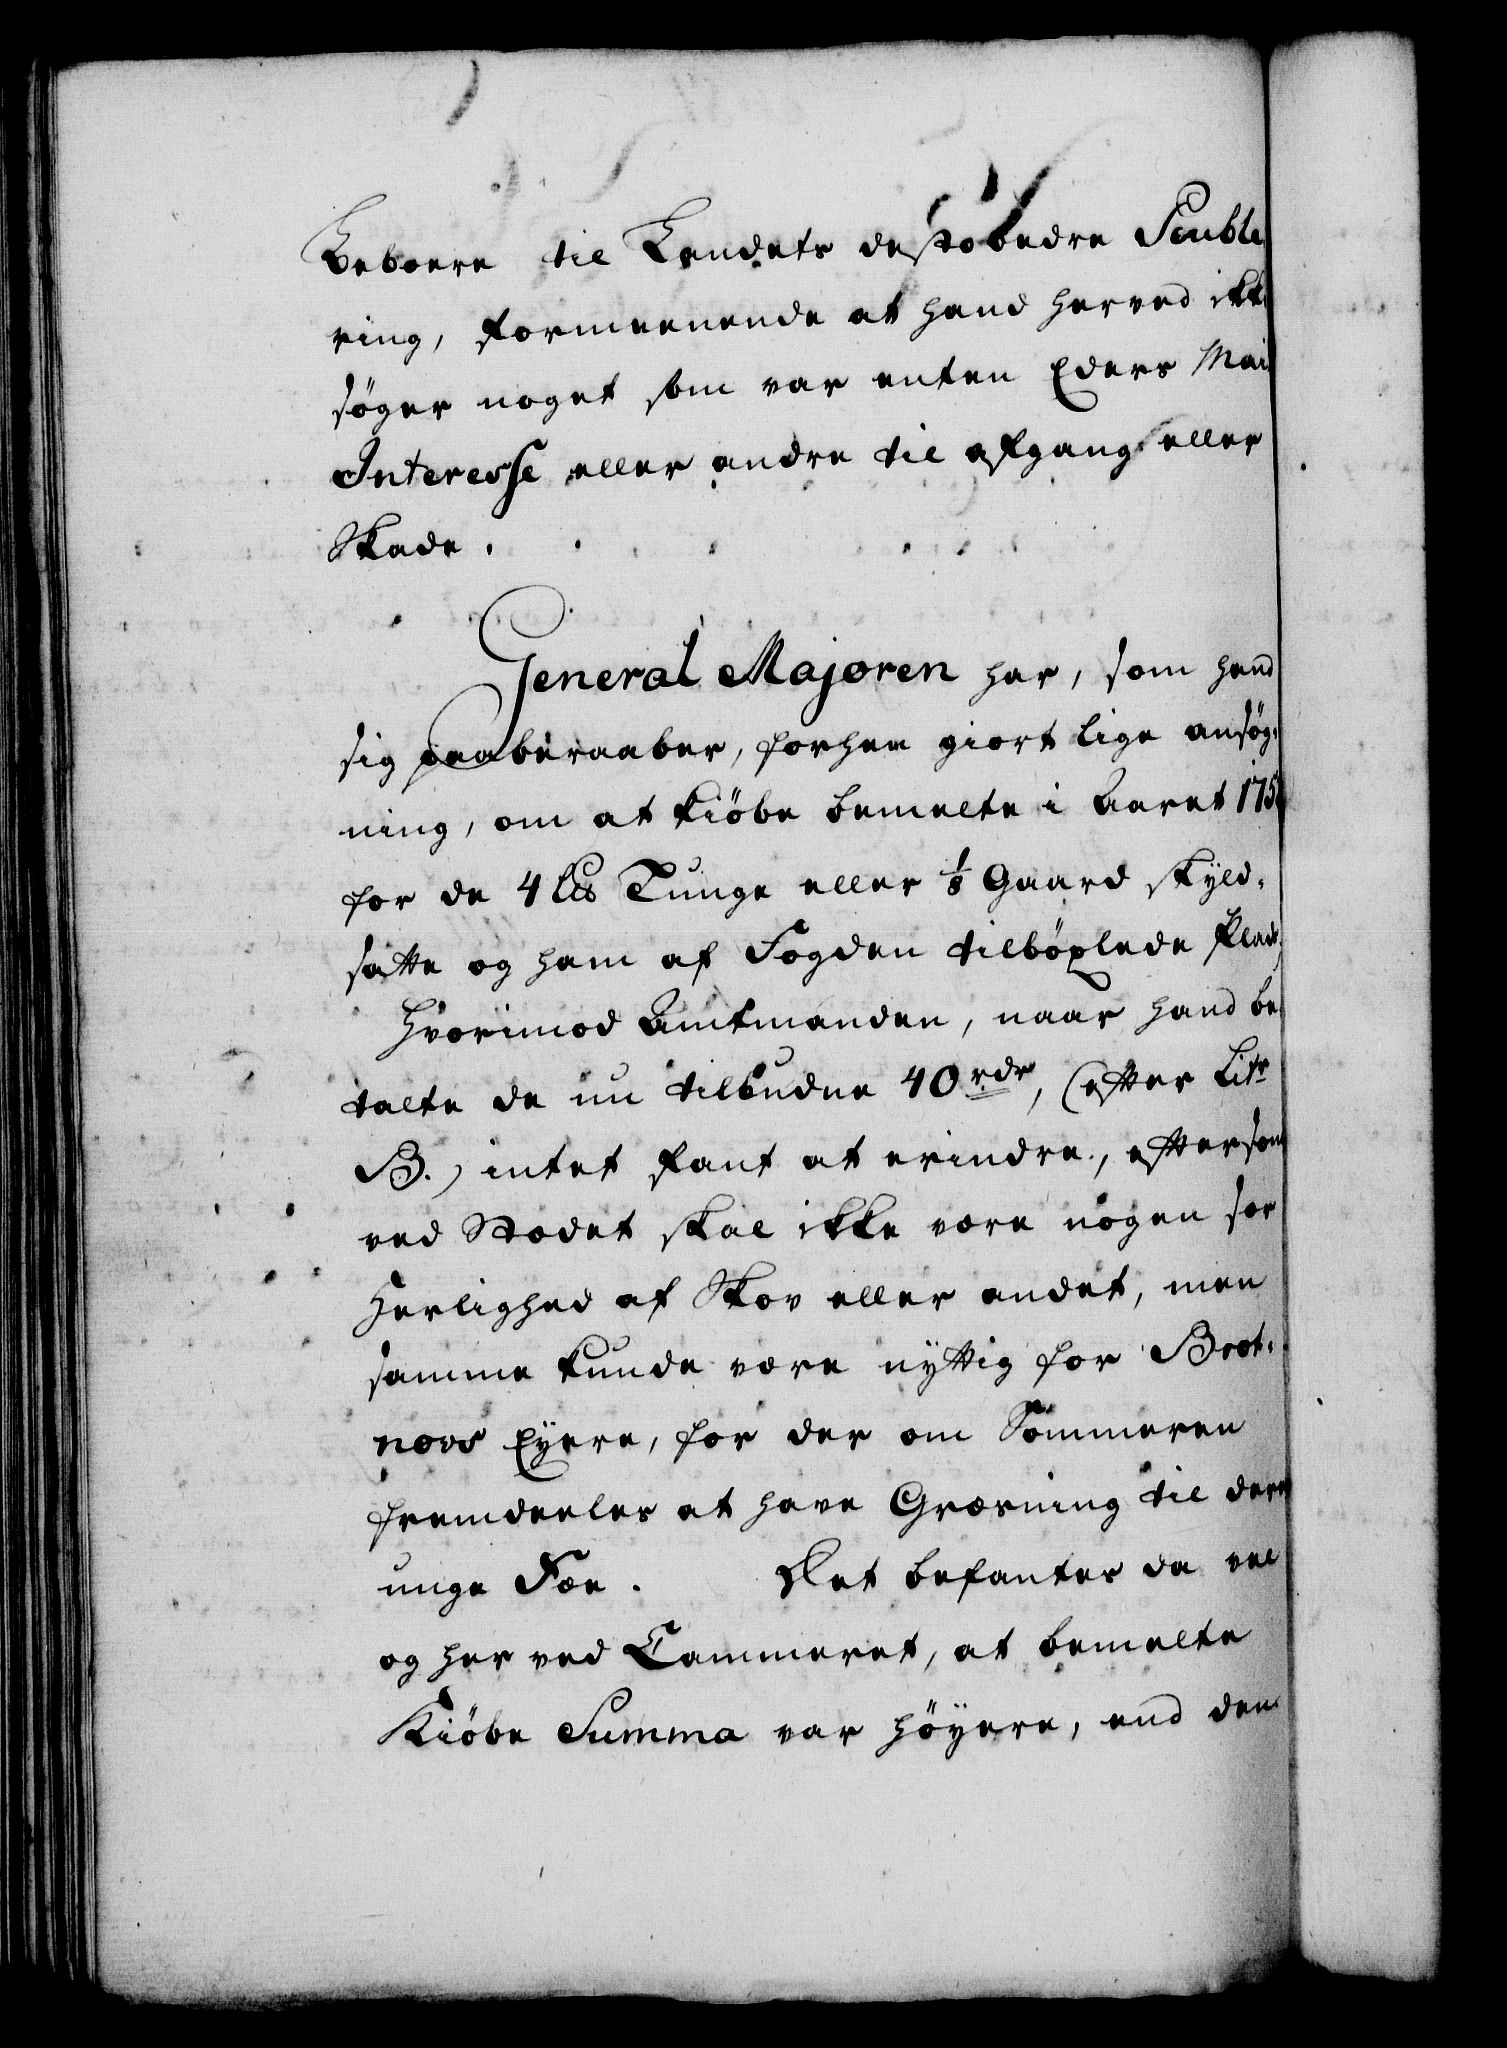 Beboere til Landets desto bedre Peuble
ring, formeenende at hand herved ikke
søger noget som var enten Eders Mai
Interesse eller andre til afgang eller
Skade.
General Majoren har, som hand
sig paaberaaber, forhen giort lige ansøg-
ning, om at kiöbe bemelte i Aaret 175
for de 4 Lis Tunge eller 1/8 Gaard skyld-
satte og ham af Fogden tilböxlede Plads,
Hvorimod Amtmanden, naar hand be
talte de nu tilbudne 40 rdr, (efter Litr
B.) intet fant at erindre, eftersom
ved Stædet skal ikke være nogen sær
Herlighed af Skov eller andet, men
samme kunde være nyttig for Brot-
næes Eyere, for der om Sommeren
fremdeeles at have Græsning til deres
unge Fæe. Det befantes da vel
og her ved Cammeret, at bemelte
Kiöbe Summa var höyere, end den